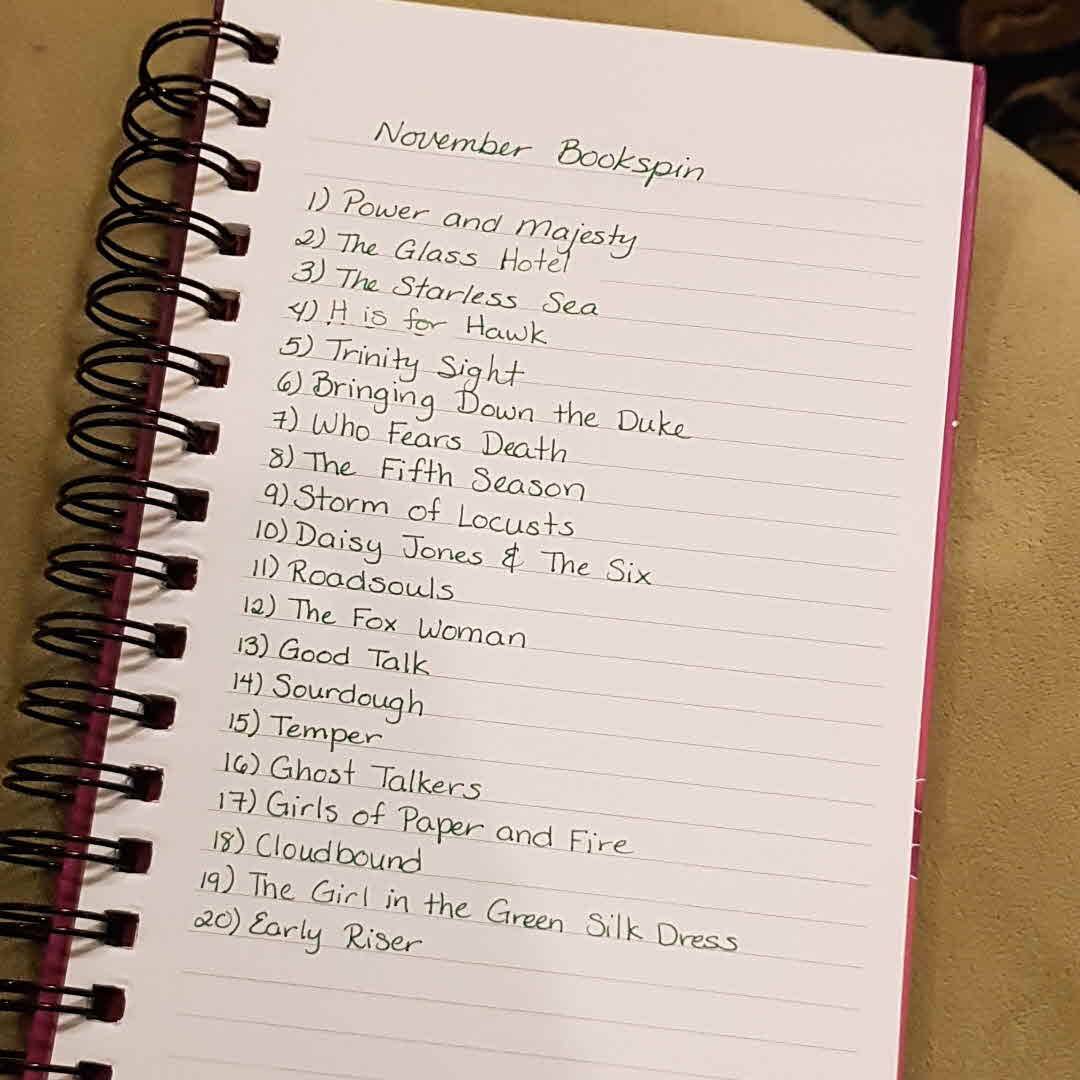 November Bookspin
1) Power and Majesty
2) The Glass Hotel
3) The Starless Sea
4) H is for Hawk
5) Trinity Sight
6) Bringing Down the Duke
7) Who Fears Death
8) The Fifth Season
9) Storm of Locusts
10) Daisy Jones & The Six
11) Roadsouls
12) The Fox Woman
13) Good Talk
14) Sourdough
15) Temper
16) Ghost Talkers
17) Girls of Paper and Fire
18) Cloudbound
19) The Girl in the Green Silk Dress
20) Early Riser